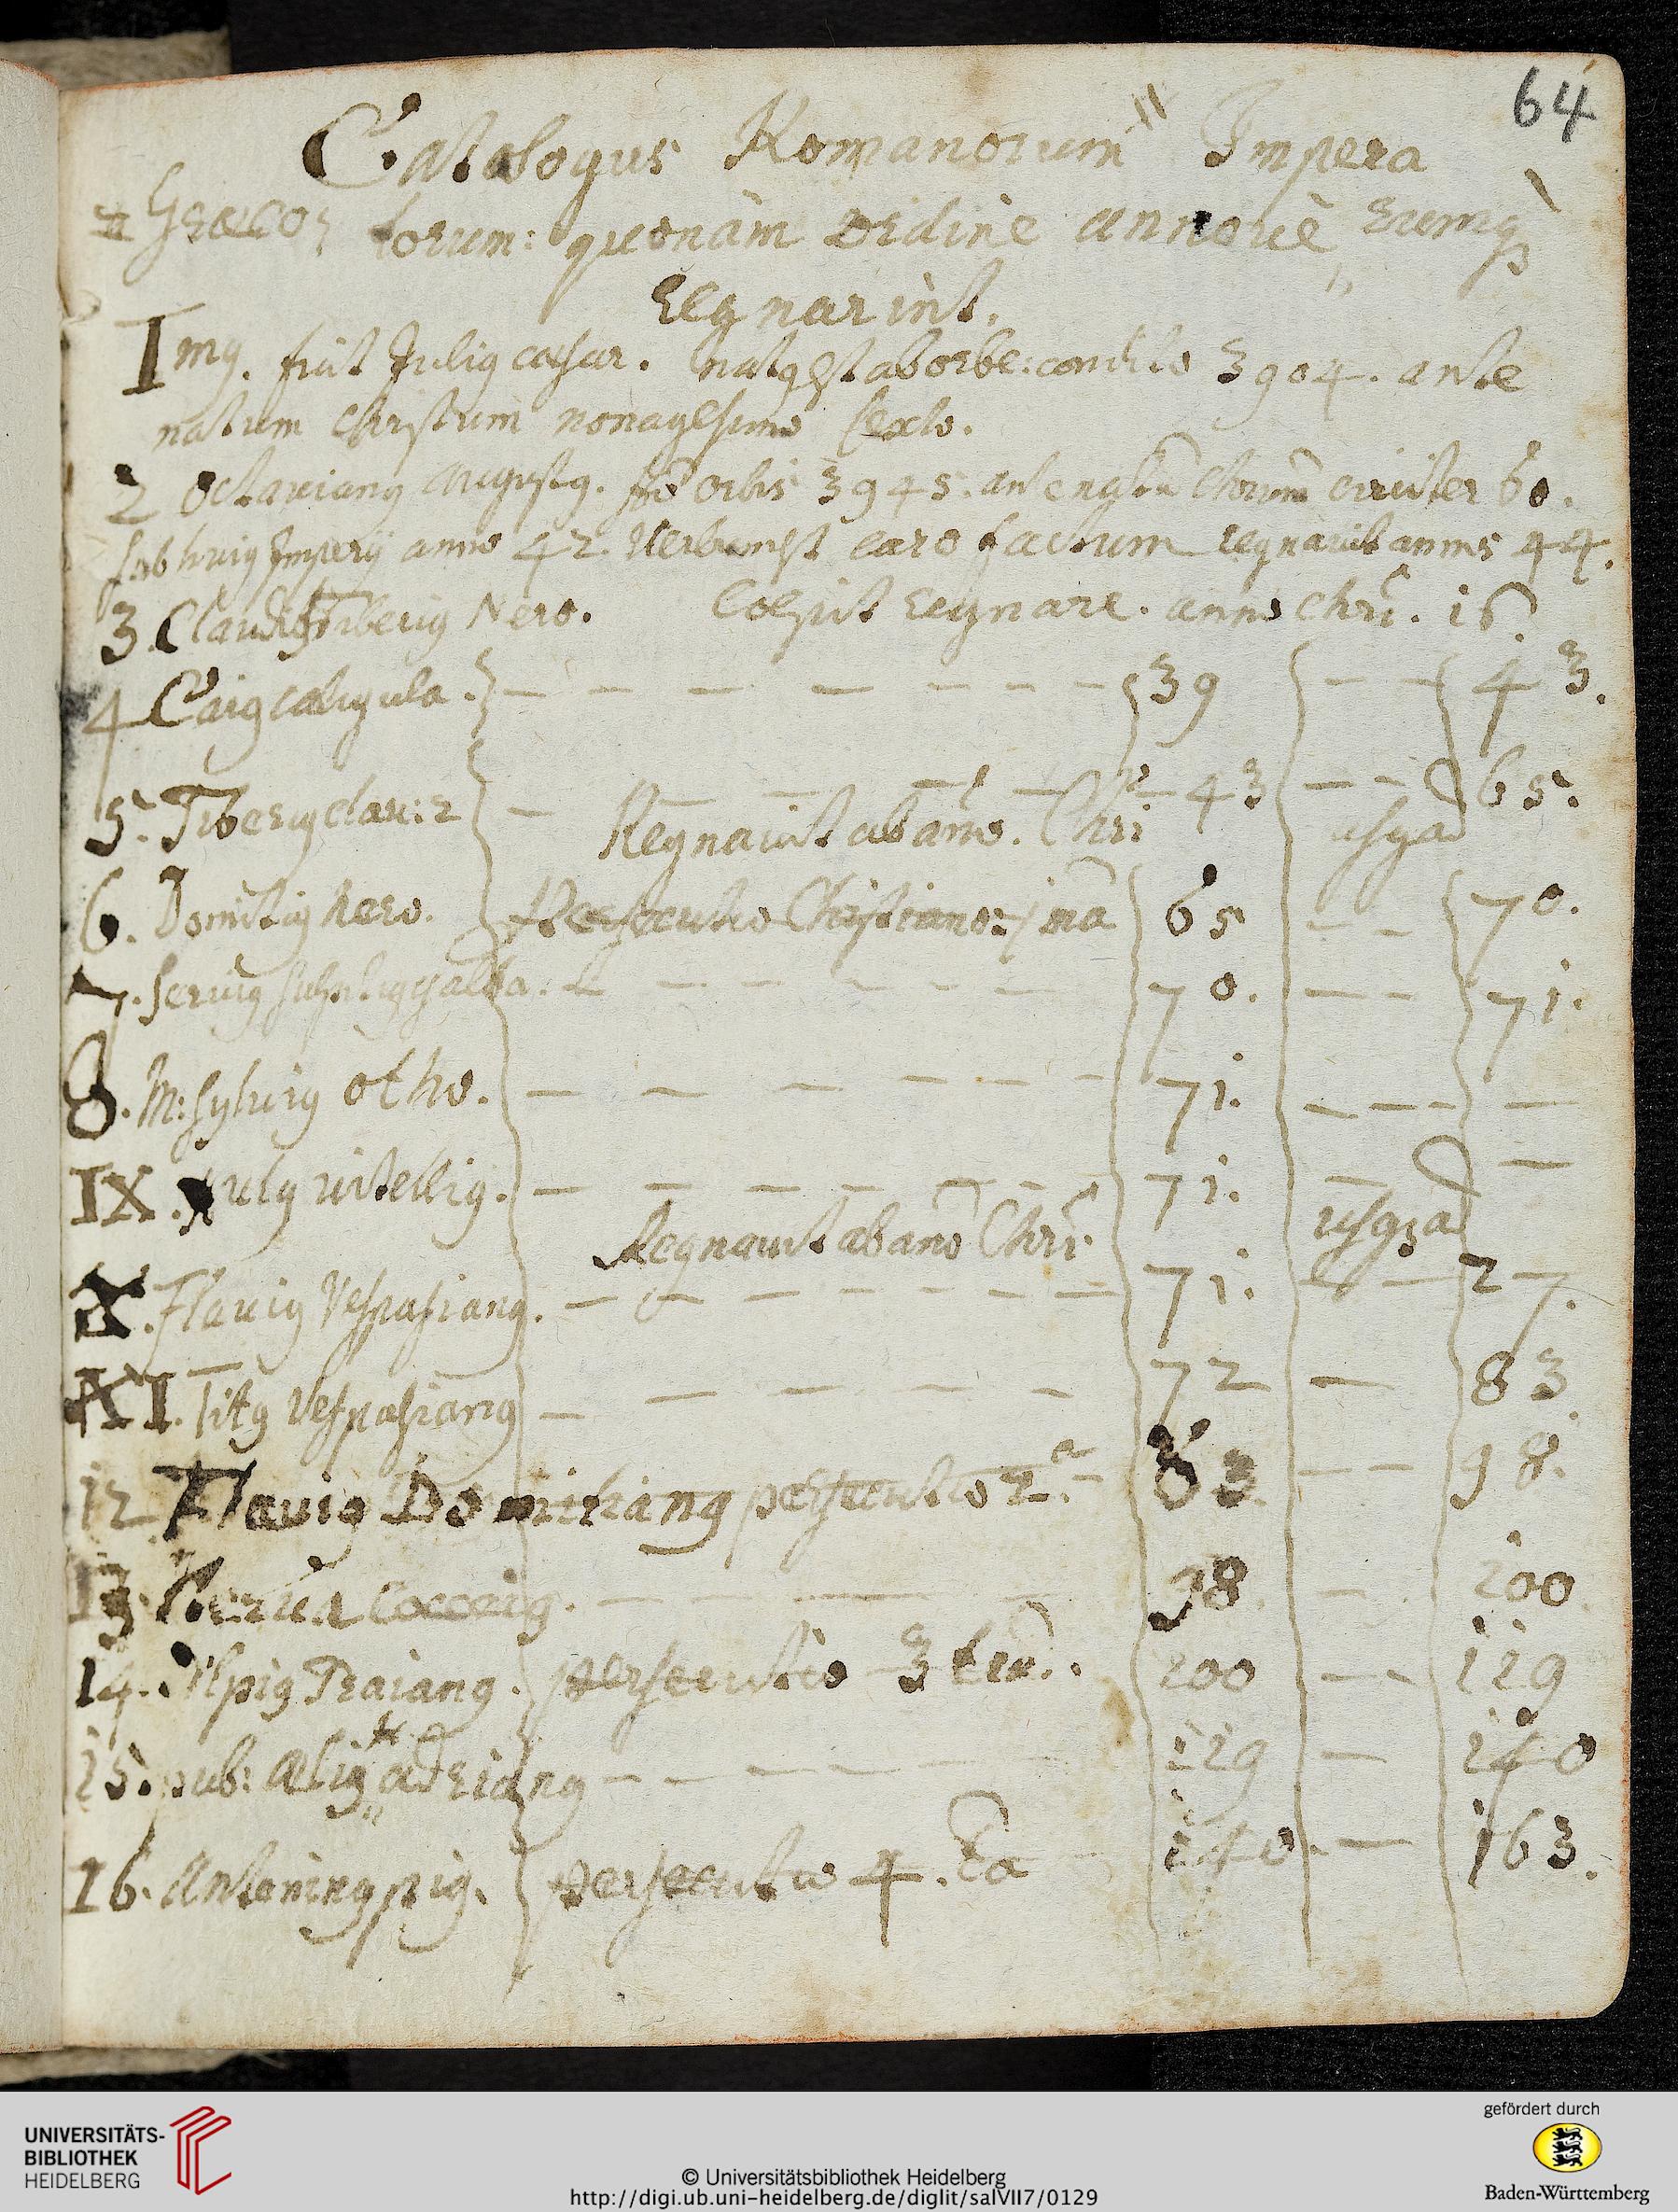 64
Catalogus Romanorum" Impera
Græcor torum: quonam ordine annovè rumq3
regnarint.
Im9. fuit Juli9 cæsar. nat9 est ab orbe: condito 3904. ante
natum Christum nonagesimo sexto.
2 Octavian9 august9. orbis 3945. ante natū Chrum circiter 60.
sub hui9 Imperij anno 42. Verbum est caro factum regnavit annis 44.
3. Claudi9 Tiberi9 Nero. Coepit regnare. anno Chri. 16.
4 Cai9 caligula. — — — — — — — 39 — — 43.
5. Tiberi9 clau: 2 — Regnavit ab anno. Chri 43 — — usq ad 65.
6. Domiti9 nero. Persecutio Christianor 1ma 65 — — 70.
7. servi9 sulpiti9 galba. — — — — — — 70. — — 71.
8. M: sylvi9 otho. — — — — — — 71. — — — —
IX. vitelli9. — — — — — — 71. — —
Regnavit ab anno Chri. usq3 ad
X. Flavi9 Vespasian9. — — — — — — 71. — — 27.
XI. Tit9 Vespasian9 — — — — — 72 — 83.
12 Flavi9 Domitian9 persecutio 2.a — 83. — — 98.
13. Nerva cocceig. — — — — 98. — . 200.
14. Ulpi9 Traian9. persecutio 3 tia. 200 — 119
15. pub: æli9 " adrian9 — — — — — 119 — 140
H
16. Antonin9 pi9. persecutio 4. ta 140. — 163.
UNIVERSITÄTS-
BIBLIOTHEK
HEIDELBERG
© Universitätsbibliothek Heidelberg
http://digi.ub.uni-heidelberg.de/diglit/salVII7/0129
gefördert durch
Baden-Württemberg